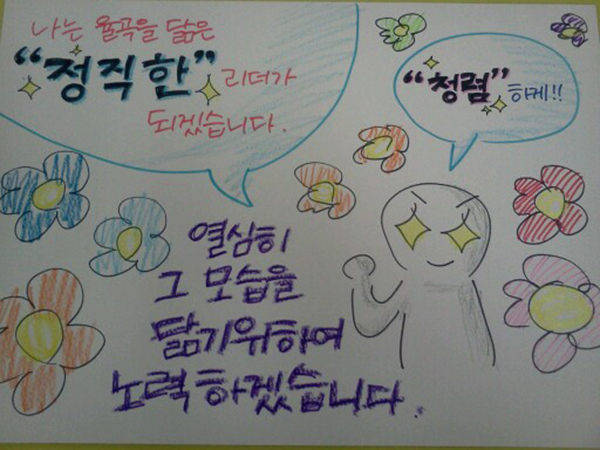 나는 율곡을 닮은
“정직한” 리더가
되겠습니다.
“청렴” 하게!!
열심히
그 모습을
닮기위하여
노력하겠습니다.